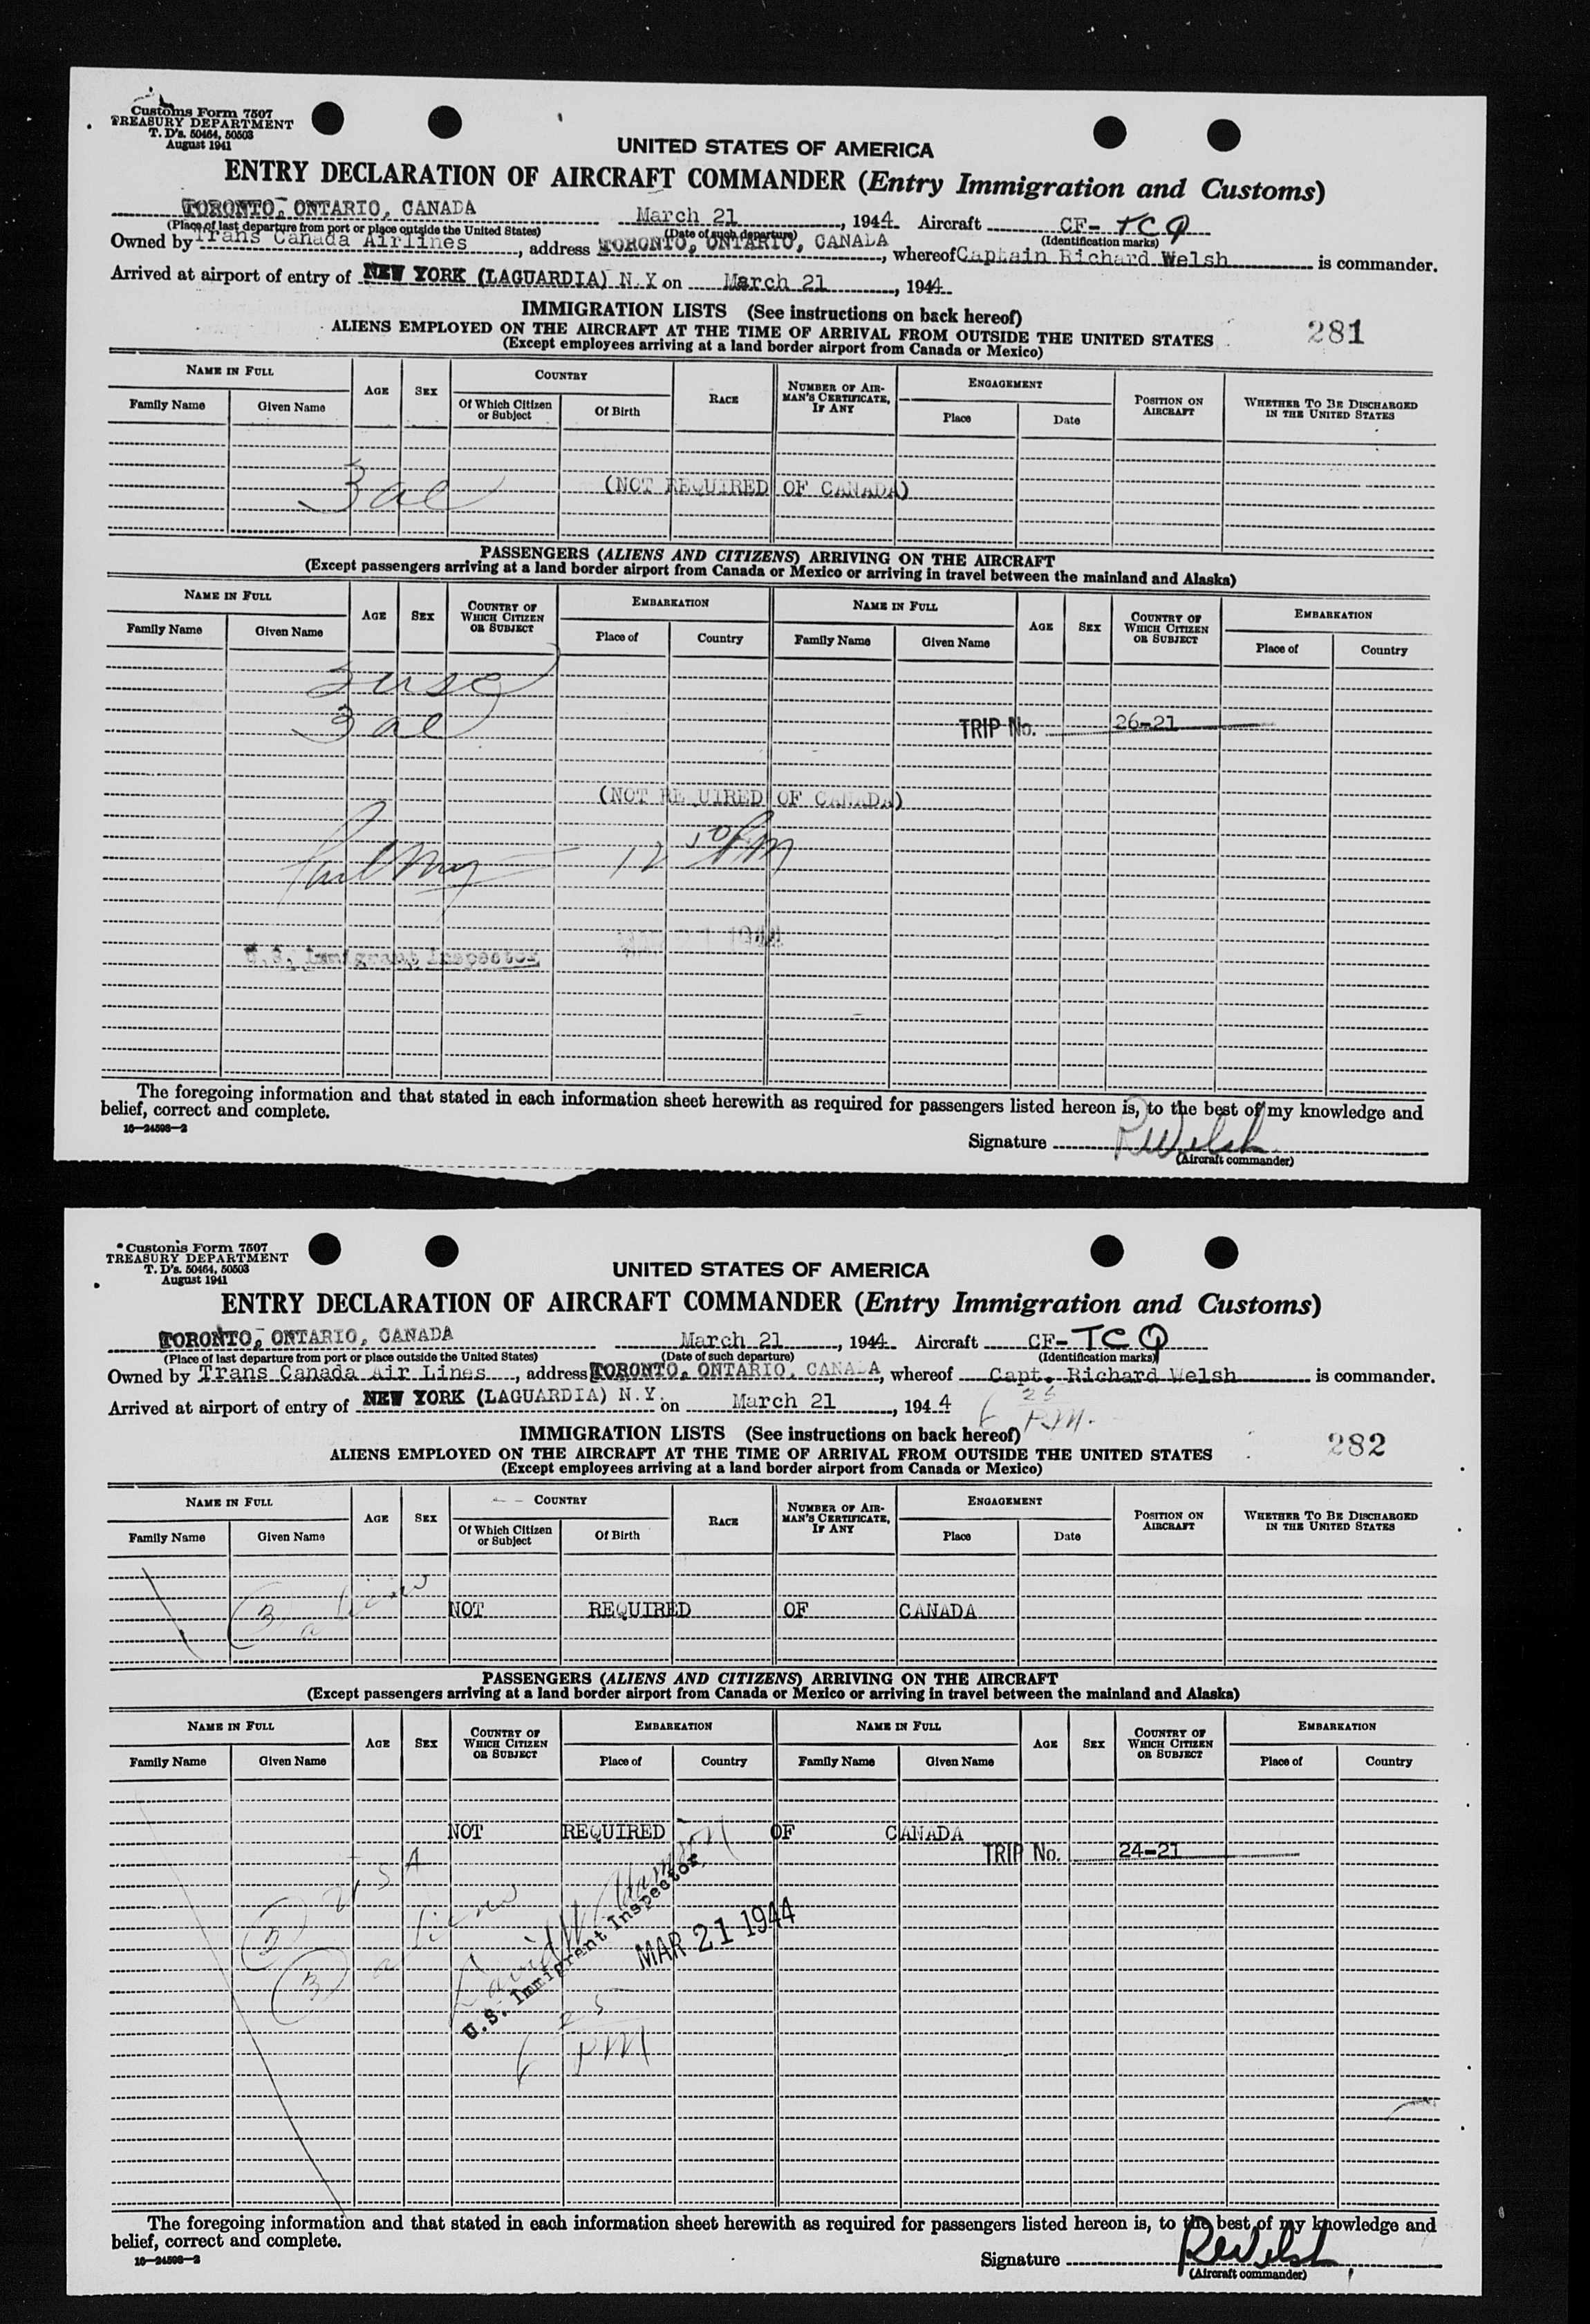 Customs Form 7507
TREASURY DEPARTMENT
T. D's. 50464, 50503
August 1941
UNITED STATES OF AMERICA
ENTRY DECLARATION OF AIRCRAFT COMMANDER (Entry Immigration and Customs)
TORONTO, ONTARIO, CANADA March 21, 1944 Aircraft CF-TCQ
(Place of last departure from port or place outside the United States) (Date of such departure) (Identification marks)
Owned by Trans Canada Airlines, address TORONTO, ONTARIO, CANADA, whereof Captain Richard Welsh is commander.
Arrived at airport of entry of NEW YORK (LAGUARDIA) N.Y on March 21, 1944
IMMIGRATION LISTS (See instructions on back hereof)
281
ALIENS EMPLOYED ON THE AIRCRAFT AT THE TIME OF ARRIVAL FROM OUTSIDE THE UNITED STATES
(Except employees arriving at a land border airport from Canada or Mexico)
NAME IN FULL AGE SEX COUNTRY RACE NUMBER OF AIR-MAN'S CERTIFICATE, IF ANY ENGAGEMENT POSITION ON AIRCRAFT WHETHER TO BE DISCHARGED IN THE UNITED STATES
Family Name Given Name Of Which Citizen or Subject Of Birth Place Date
3 al (NOT REQUIRED OF CANADA)
PASSENGERS (ALIENS AND CITIZENS) ARRIVING ON THE AIRCRAFT
(Except passengers arriving at a land border airport from Canada or Mexico or arriving in travel between the mainland and Alaska)
NAME IN FULL AGE SEX COUNTRY OF WHICH CITIZEN OR SUBJECT EMBARKATION NAME IN FULL AGE SEX COUNTRY OF WHICH CITIZEN OR SUBJECT EMBARKATION
Family Name Given Name Place of Country Family Name Given Name Place of Country
3 usc
3 al
TRIP No. 26-21
(NOT REQUIRED OF CANADA)
12 50 PM
MAR 21 1944
U.S. Immigrant Inspector
The foregoing information and that stated in each information sheet herewith as required for passengers listed hereon is, to the best of my knowledge and
belief, correct and complete.
16-24598-2
Signature RWelsh
(Aircraft commander)
Customs Form 7507
TREASURY DEPARTMENT
T. D's. 50464, 50503
August 1941
UNITED STATES OF AMERICA
ENTRY DECLARATION OF AIRCRAFT COMMANDER (Entry Immigration and Customs)
TORONTO, ONTARIO, CANADA March 21, 1944 Aircraft CF-TCQ
(Place of last departure from port or place outside the United States) (Date of such departure) (Identification marks)
Owned by Trans Canada Air Lines, address TORONTO, ONTARIO, CANADA, whereof Capt. Richard Welsh is commander.
Arrived at airport of entry of NEW YORK (LAGUARDIA) N.Y. on March 21, 1944 6 25 P.M.
IMMIGRATION LISTS (See instructions on back hereof)
282
ALIENS EMPLOYED ON THE AIRCRAFT AT THE TIME OF ARRIVAL FROM OUTSIDE THE UNITED STATES
(Except employees arriving at a land border airport from Canada or Mexico)
NAME IN FULL AGE SEX COUNTRY RACE NUMBER OF AIR-MAN'S CERTIFICATE, IF ANY ENGAGEMENT POSITION ON AIRCRAFT WHETHER TO BE DISCHARGED IN THE UNITED STATES
Family Name Given Name Of Which Citizen or Subject Of Birth Place Date
3 aliens NOT REQUIRED OF CANADA
PASSENGERS (ALIENS AND CITIZENS) ARRIVING ON THE AIRCRAFT
(Except passengers arriving at a land border airport from Canada or Mexico or arriving in travel between the mainland and Alaska)
NAME IN FULL AGE SEX COUNTRY OF WHICH CITIZEN OR SUBJECT EMBARKATION NAME IN FULL AGE SEX COUNTRY OF WHICH CITIZEN OR SUBJECT EMBARKATION
Family Name Given Name Place of Country Family Name Given Name Place of Country
NOT REQUIRED OF CANADA
TRIP No. 24-21
3 USA
3 aliens
U.S. Immigrant Inspector
MAR 21 1944
6 25 PM
The foregoing information and that stated in each information sheet herewith as required for passengers listed hereon is, to the best of my knowledge and
belief, correct and complete.
16-24598-2
Signature RWelsh
(Aircraft commander)